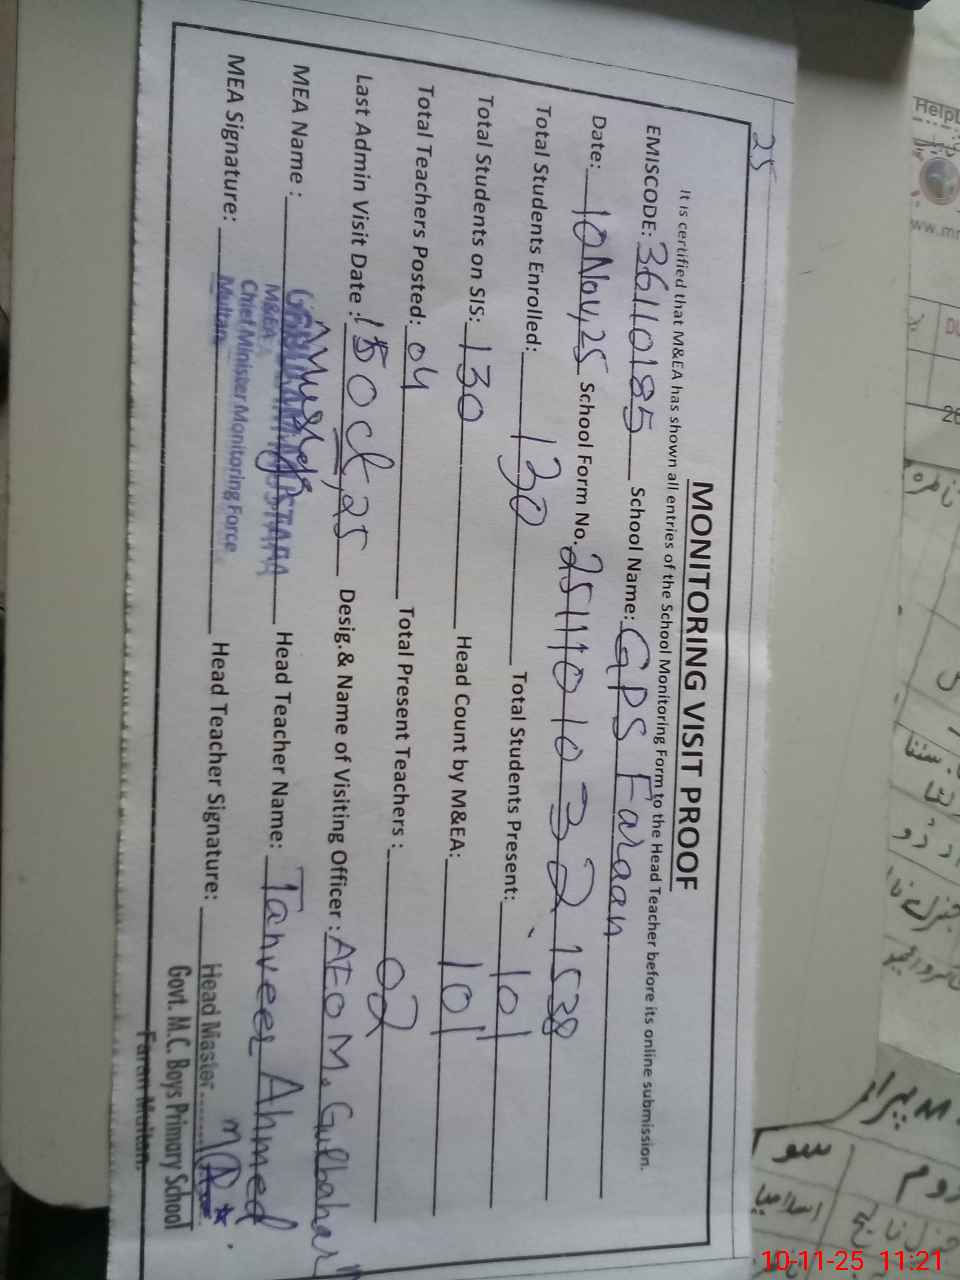 25
MONITORING VISIT PROOF
It is certified that M&EA has shown all entries of the School Monitoring Form to the Head Teacher before its online submission.
EMISCODE: 36110185 School Name: GPS Faraan
Date: 10 Nov, 25 School Form No. 2511101032 1538
Total Students Enrolled: 130 Total Students Present: 101
Total Students on SIS: 130 Head Count by M&EA: 101
Total Teachers Posted: 04 Total Present Teachers : 02
Last Admin Visit Date : 15 Oct, 25 Desig.& Name of Visiting Officer : AEO M. Gulbahar
MEA Name : Head Teacher Name: Tanveer Ahmed
M&EA
Chief Minister Monitoring Force
Multan
MEA Signature: Head Teacher Signature:
Head Master
Govt. M.C. Boys Primary School
Faran Multan
Help
ناظرہ
اردو
سو
دوم
اسلامیا
10-11-25 11:21